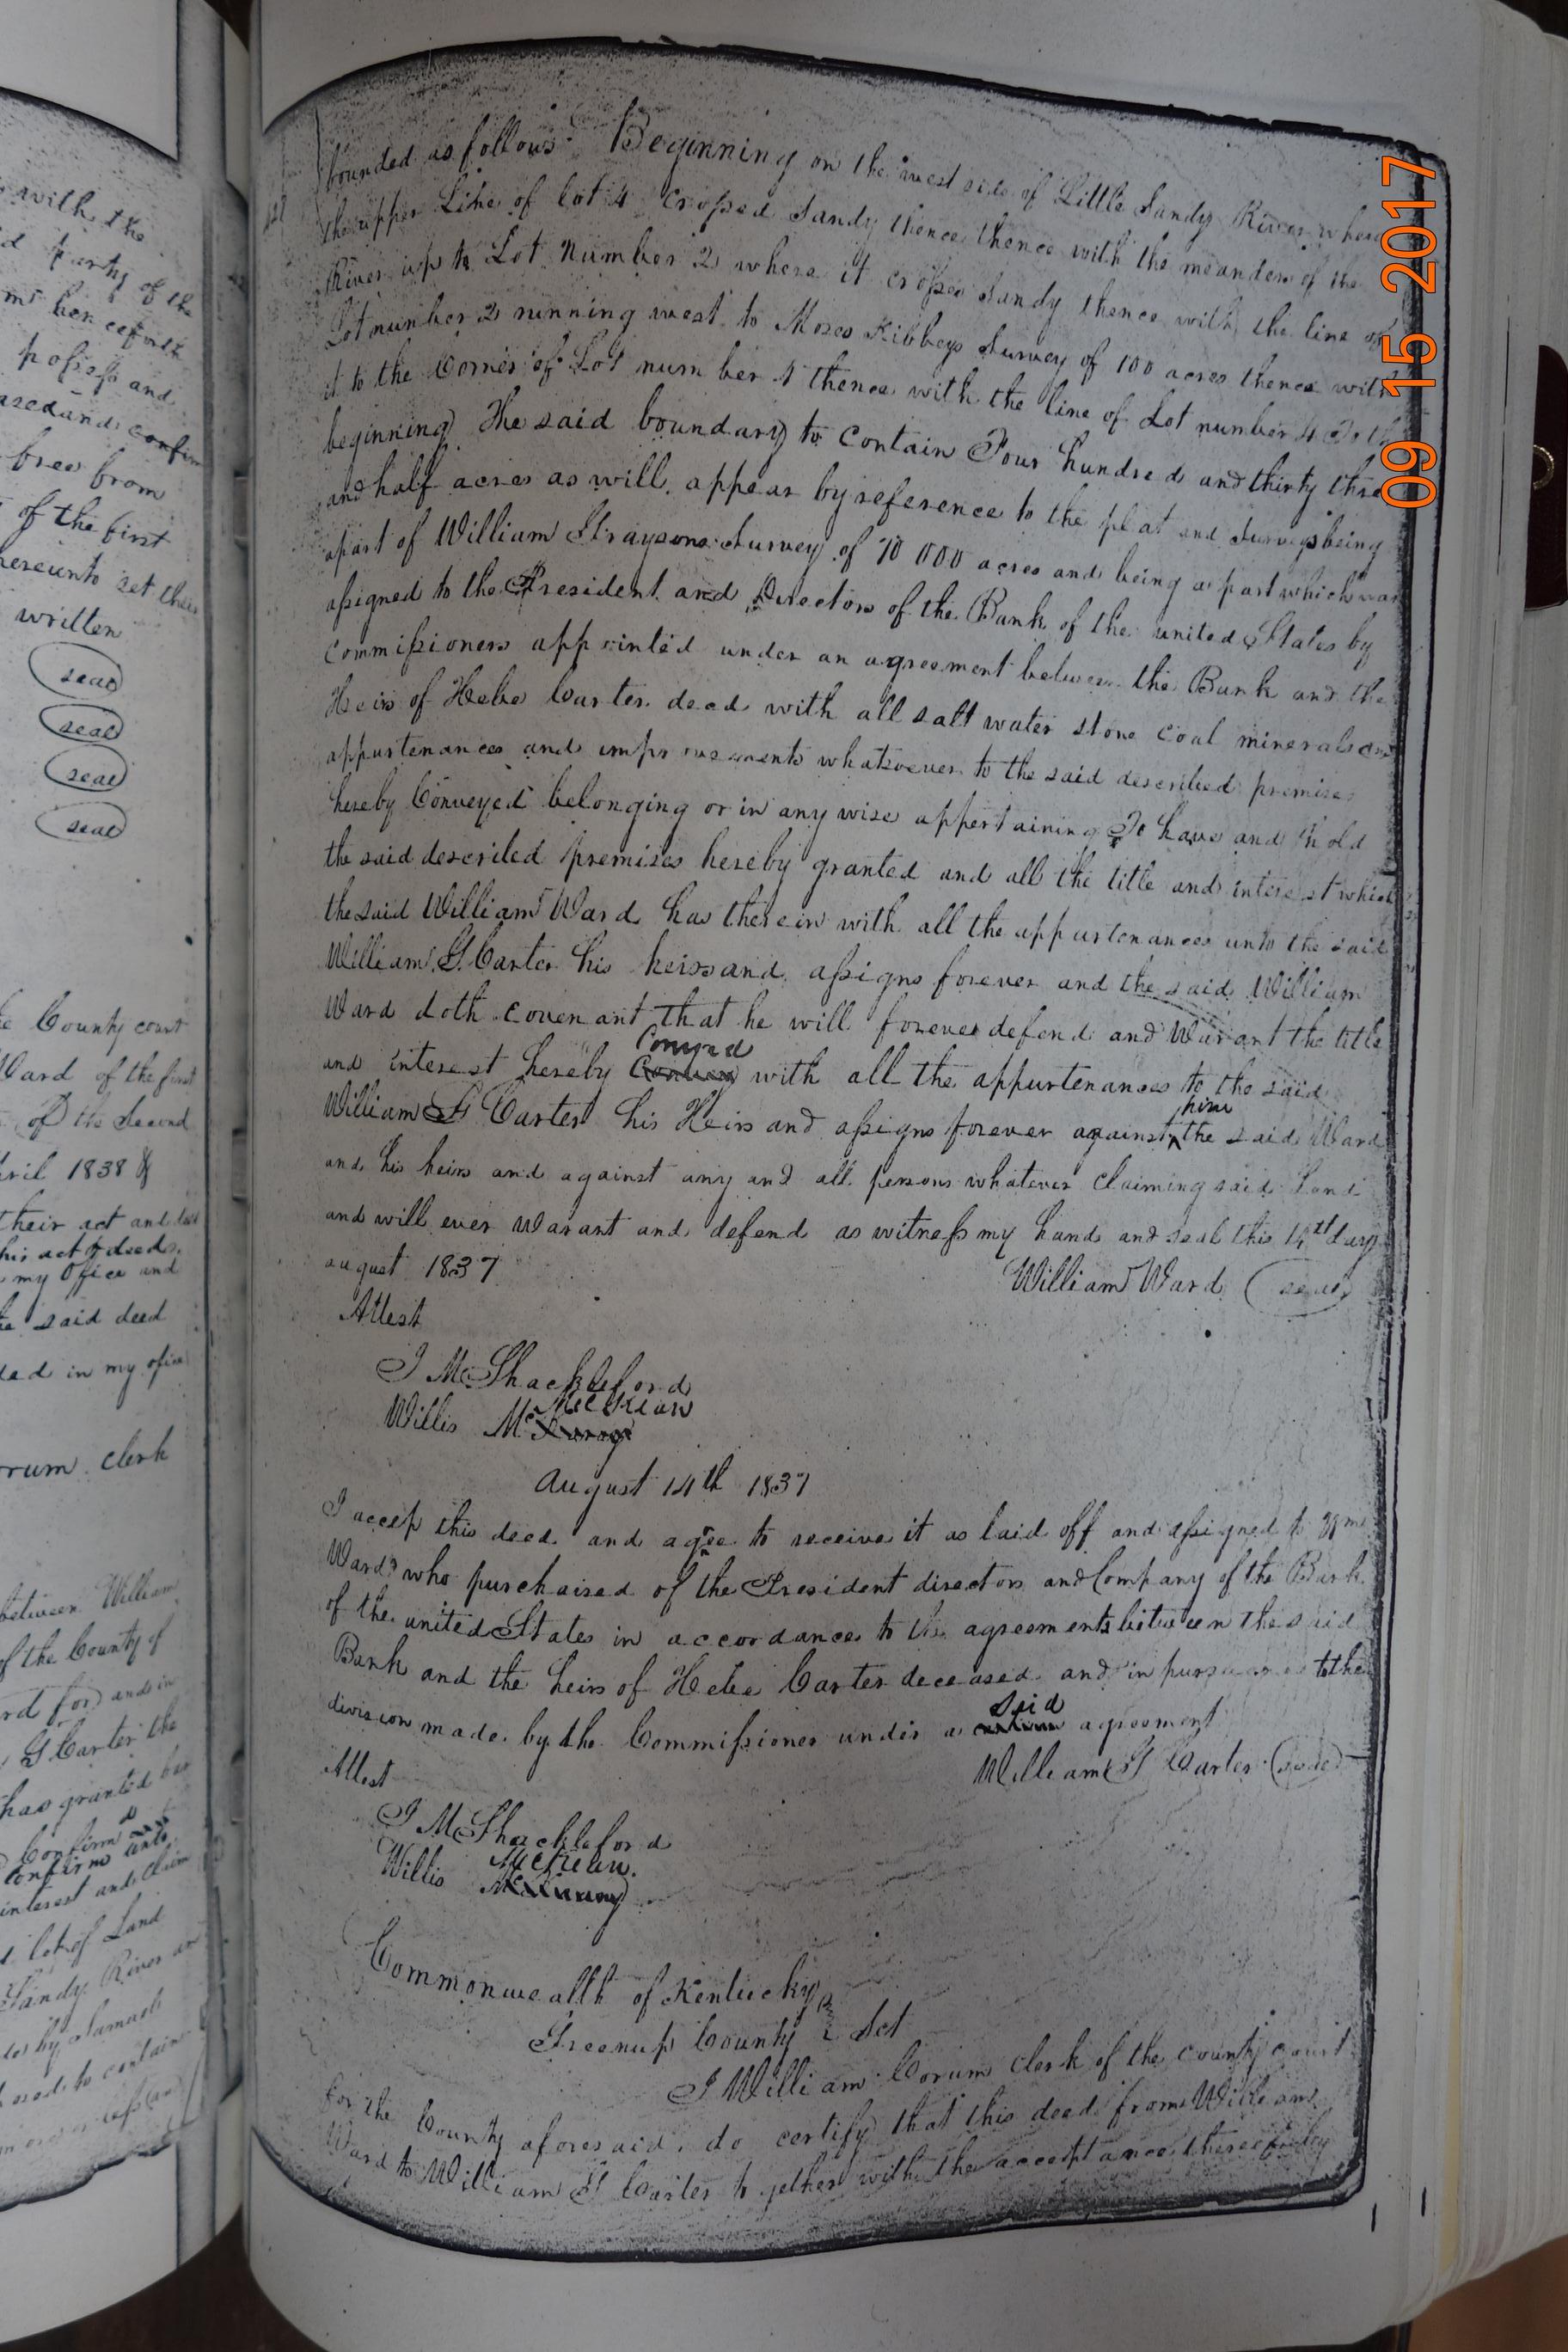 with the
party of the
henceforth
possess and
and confirm
free from
of the first
hereunto set their
written
seal
seal
seal
seal
County court
Ward of the first
of the Second
April 1838 &
their act and
his act & deeds
my Office and
said deed
in my office
clerk
between William
of the County of
for and in
G Carter the
has granted
Confirm
confirm unto
interest and claim
lot of Land
Sandy River
by Samuel
to contain
bounded as follows Beginning on the west side of Little Sandy River where
the upper Line of lot 4 Crossed Sandy thence thence with the meanders of the
River up to Lot Number 2 where it crosses Sandy thence with the line of
Lot number 2 running west to Moses Kibbeys Survey of 100 acres thence with
it to the Corner of Lot number 4 thence with the line of Lot number 4 To the
beginning The said boundary to contain Four hundred and thirty three
and half acres as will appear by reference to the plat and Surveys being
apart of William Graysons Survey of 70 000 acres and being a part which was
assigned to the President and Directors of the Bank of the united States by
commissioners appointed under an agreement between the Bank and the
Heirs of Hebe Carter decd with all salt water stone coal minerals and
appurtenances and improvements whatsoever to the said described premises
hereby Conveyed belonging or in any wise appertaining To have and to hold
the said described premises hereby granted and all the title and interest which
the said William Ward has therein with all the appurtenances unto the said
William G. Carter his heirs and assigns forever and the said William
Ward doth covenant that he will forever defend and Warant the title
Conyed
and interest hereby Convey with all the appurtenances to the said
him
William G Carter his Heirs and assigns forever against the said Ward
and his heirs and against any and all persons whatever claiming said Land
and will ever Warant and defend as witness my hand and seal this 14th day
august 1837 William Ward seal
Attest
J M Shackleford
McKean
Willis Mc
August 14th 1837
I accep this deed and agree to receive it as laid off and assigned to Wm
Ward who purchaised of the President directors and Company of the Bank
of the united States in accordance to the agreements between the said
Bank and the heirs of Hebe Carter deceased and in pursuance to the
said
division made by the Commissioner under a certain agreement
Attest William G Carter seal
J M Shackleford
McKean
Willis Mc
Commonwealth of Kentucky
Greenup County Sct
I William Corum Clerk of the county court
for the County aforesaid do certify that this deed from William
Ward to William G Carter together with the acceptance thereof by
09 15 2017